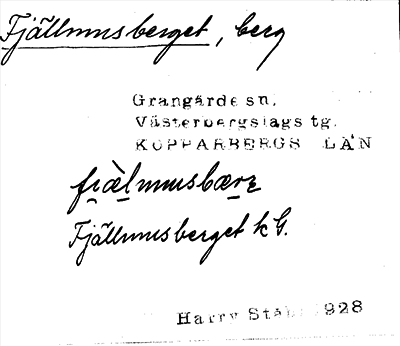 Fjällmusberget, berg
Grangärde sn.
Västerbergslags tg.
KOPPARBERGS LÄN
fjàlmusbærʒ
Fjällmusberget k G.
Harry Ståhl 1928